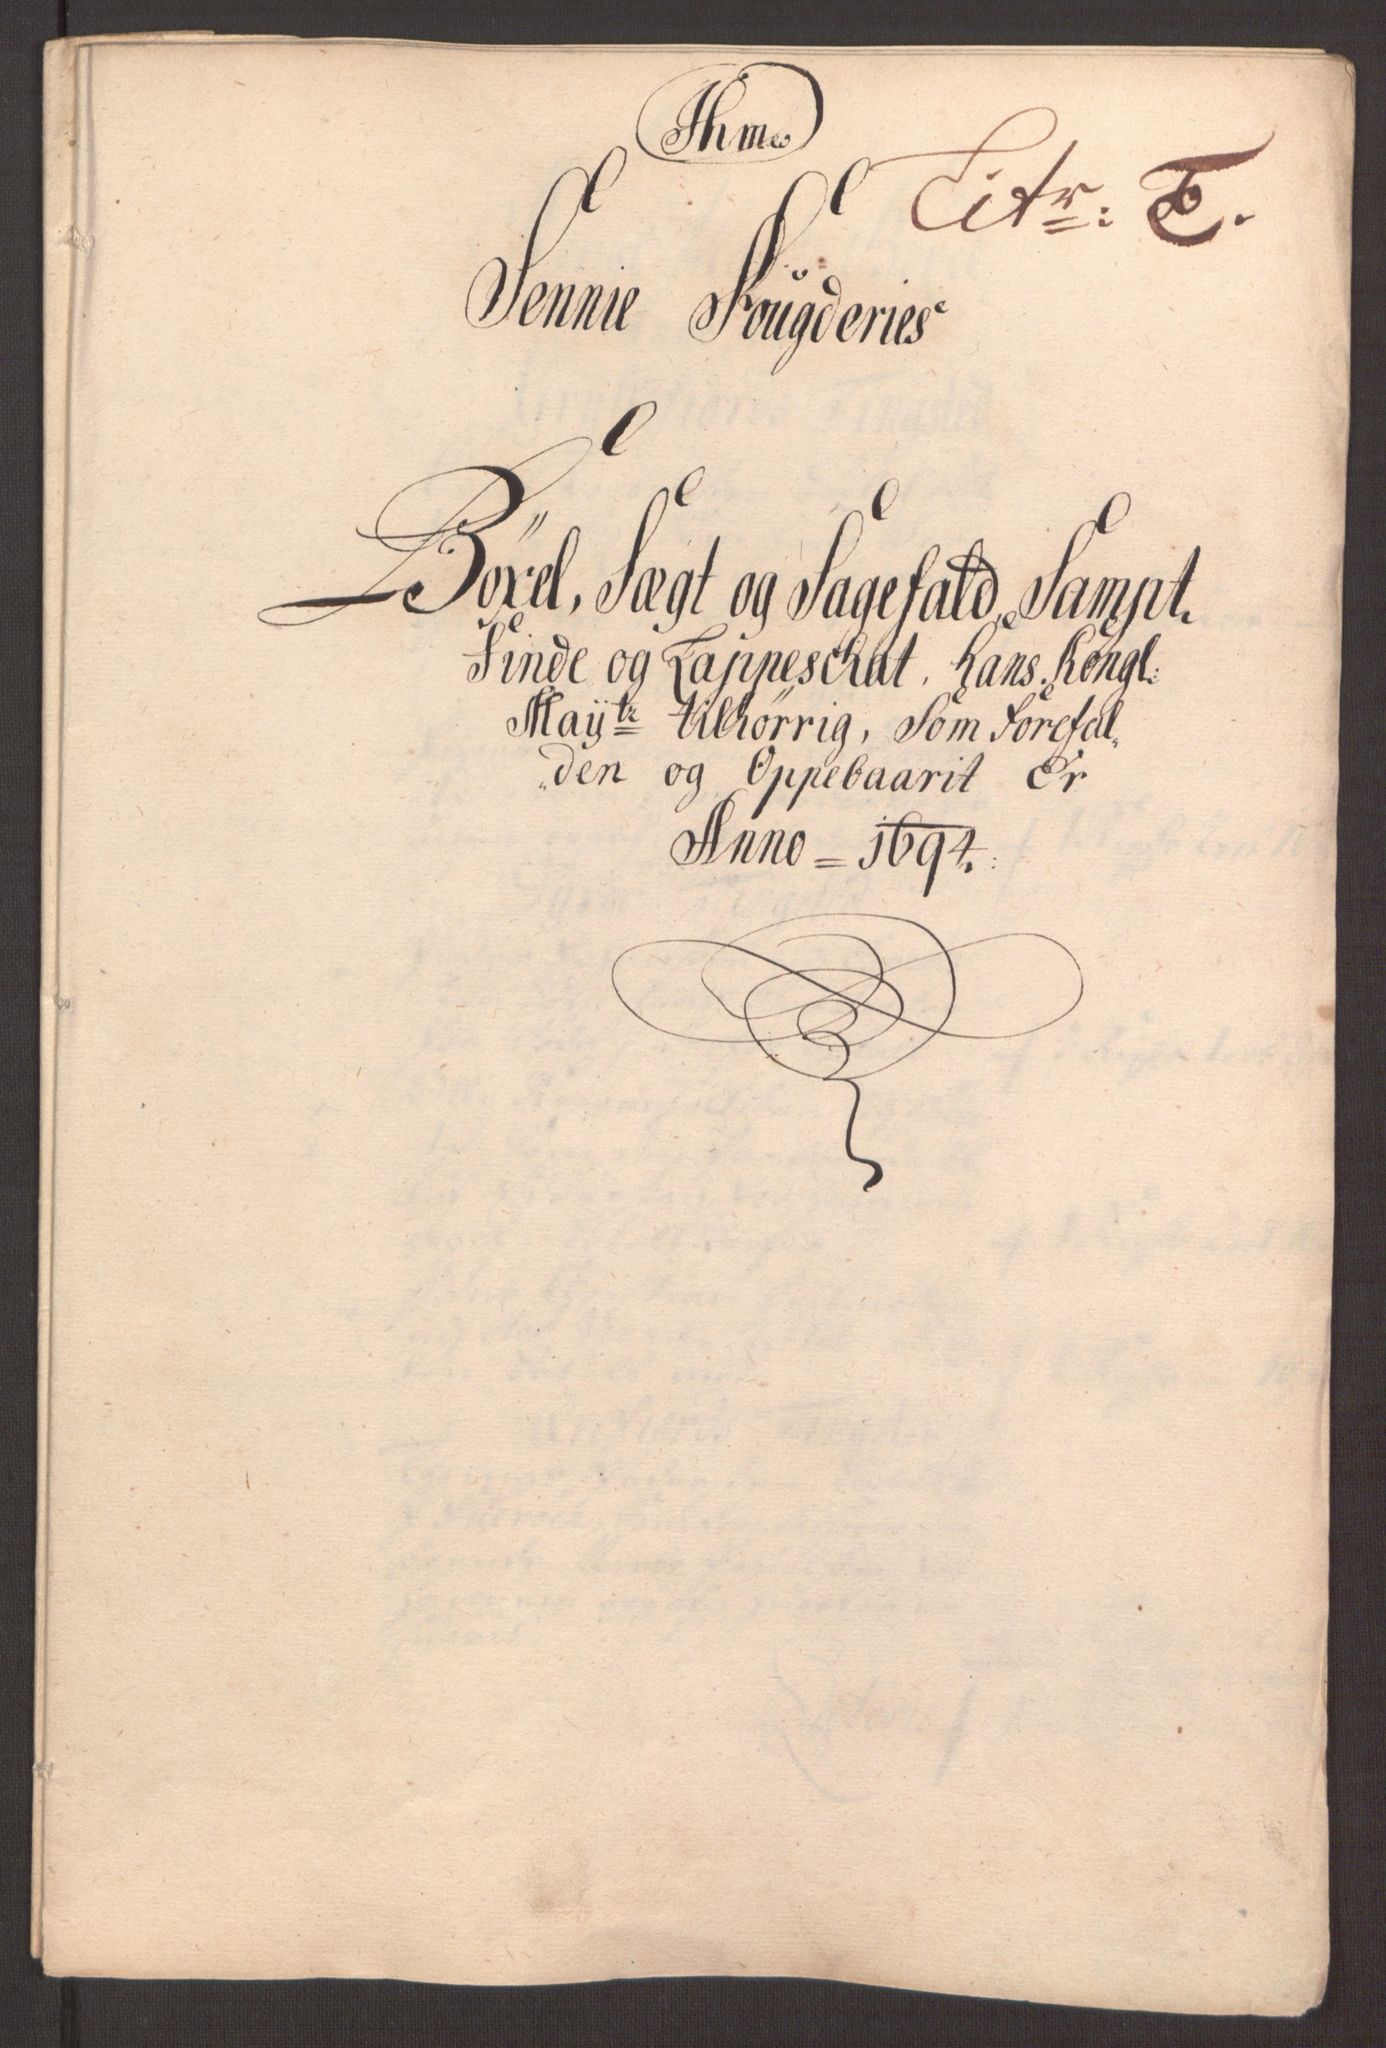 Jhmo
Litr: E.
Sennie Fougderies
Böxel, Sægt og Sagefald, Sampt.
Finde og Lappeschat, hans Kongl:
Mayᵗᶻ tilhørrig, som forefal„
„den og Oppebaarit er
Anno = 1694: